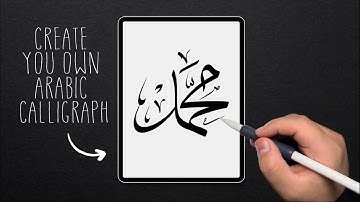 CREATE
YOU OWN
ARABIC
CALLIGRAPH
محمد